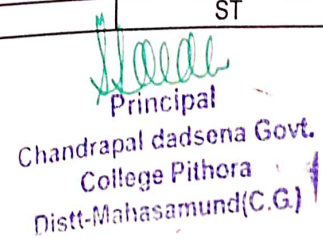 ST
Principal
Chandrapal dadsena Govt.
College Pithora
Distt-Mahasamund(C.G.)